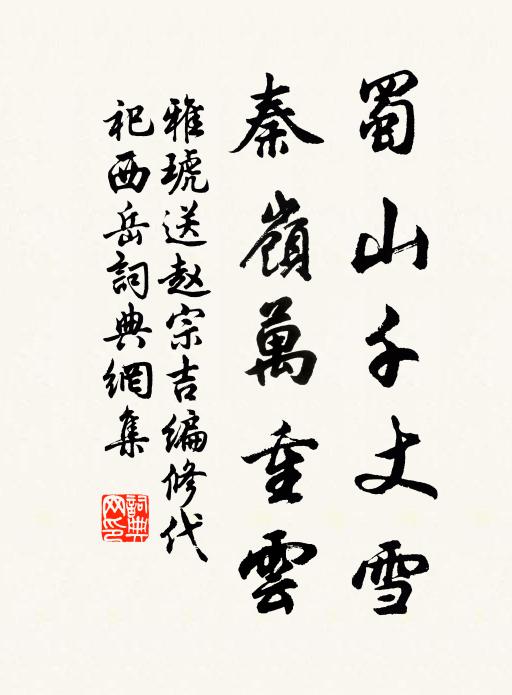 蜀山千丈雪
秦嶺萬重雲
雅琥送赵宗吉编修代
祀西岳詞典網集
詞典
网印